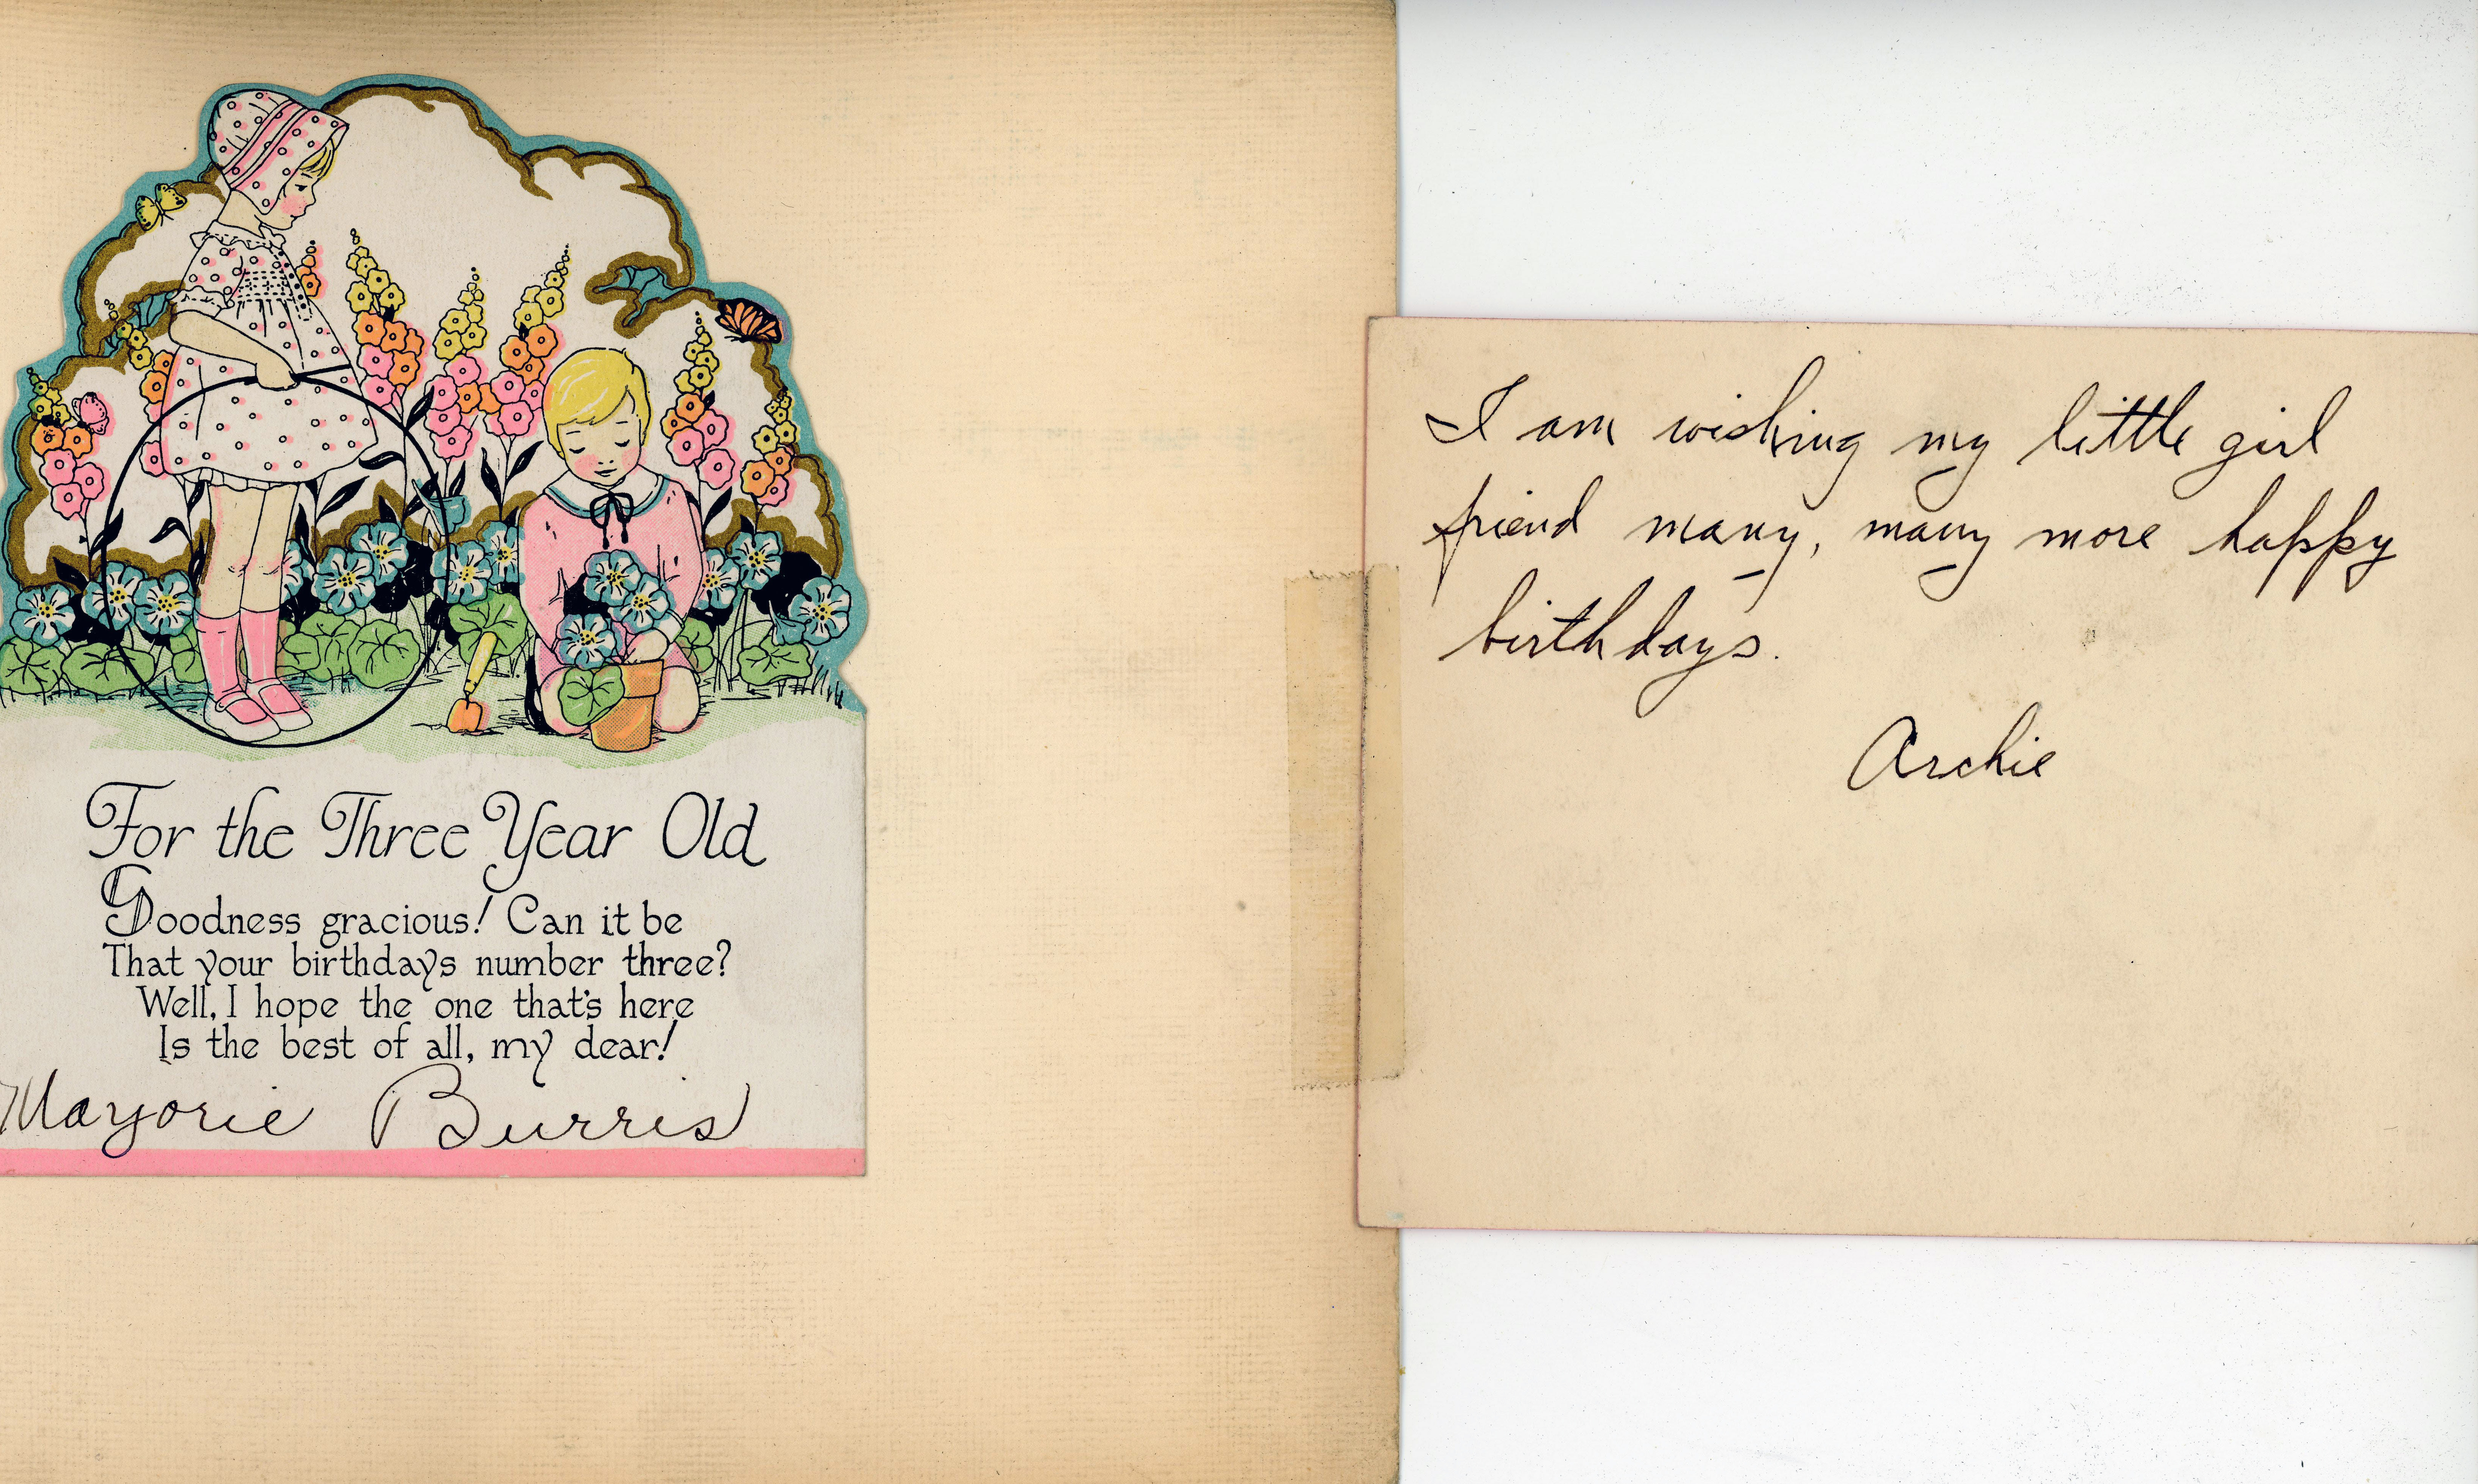 For the Three Year Old
Goodness gracious! Can it be
That your birthdays number three?
Well, I hope the one that's here
Is the best of all, my dear!
Marjorie Burris
I am wishing my little girl
friend many, many more happy
birthdays.
Archie